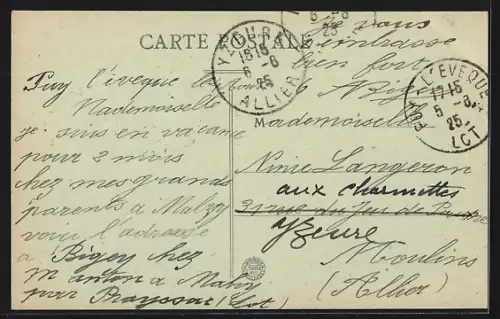 CARTE POSTALE
YZEURE
18 15
6 - 8
25
ALLIER
6 - 8
25
PUY L'EVEQUE
17 15
5 - 8
25
LOT
Je vous
embrasse
bien fort
Bigey
Puy l'éveque le
Mademoiselle
je suis en vacance
pour 3 mois
chez mes grands
parents a Malzy
voici l'adresse
Bigey chez
m anton a
par Prayssac (Lot)
Mademoiselle
Ninie Langeron
aux charmettes
31 rue du Jeu de Paume
Yzeure
Moulins
(Allier)